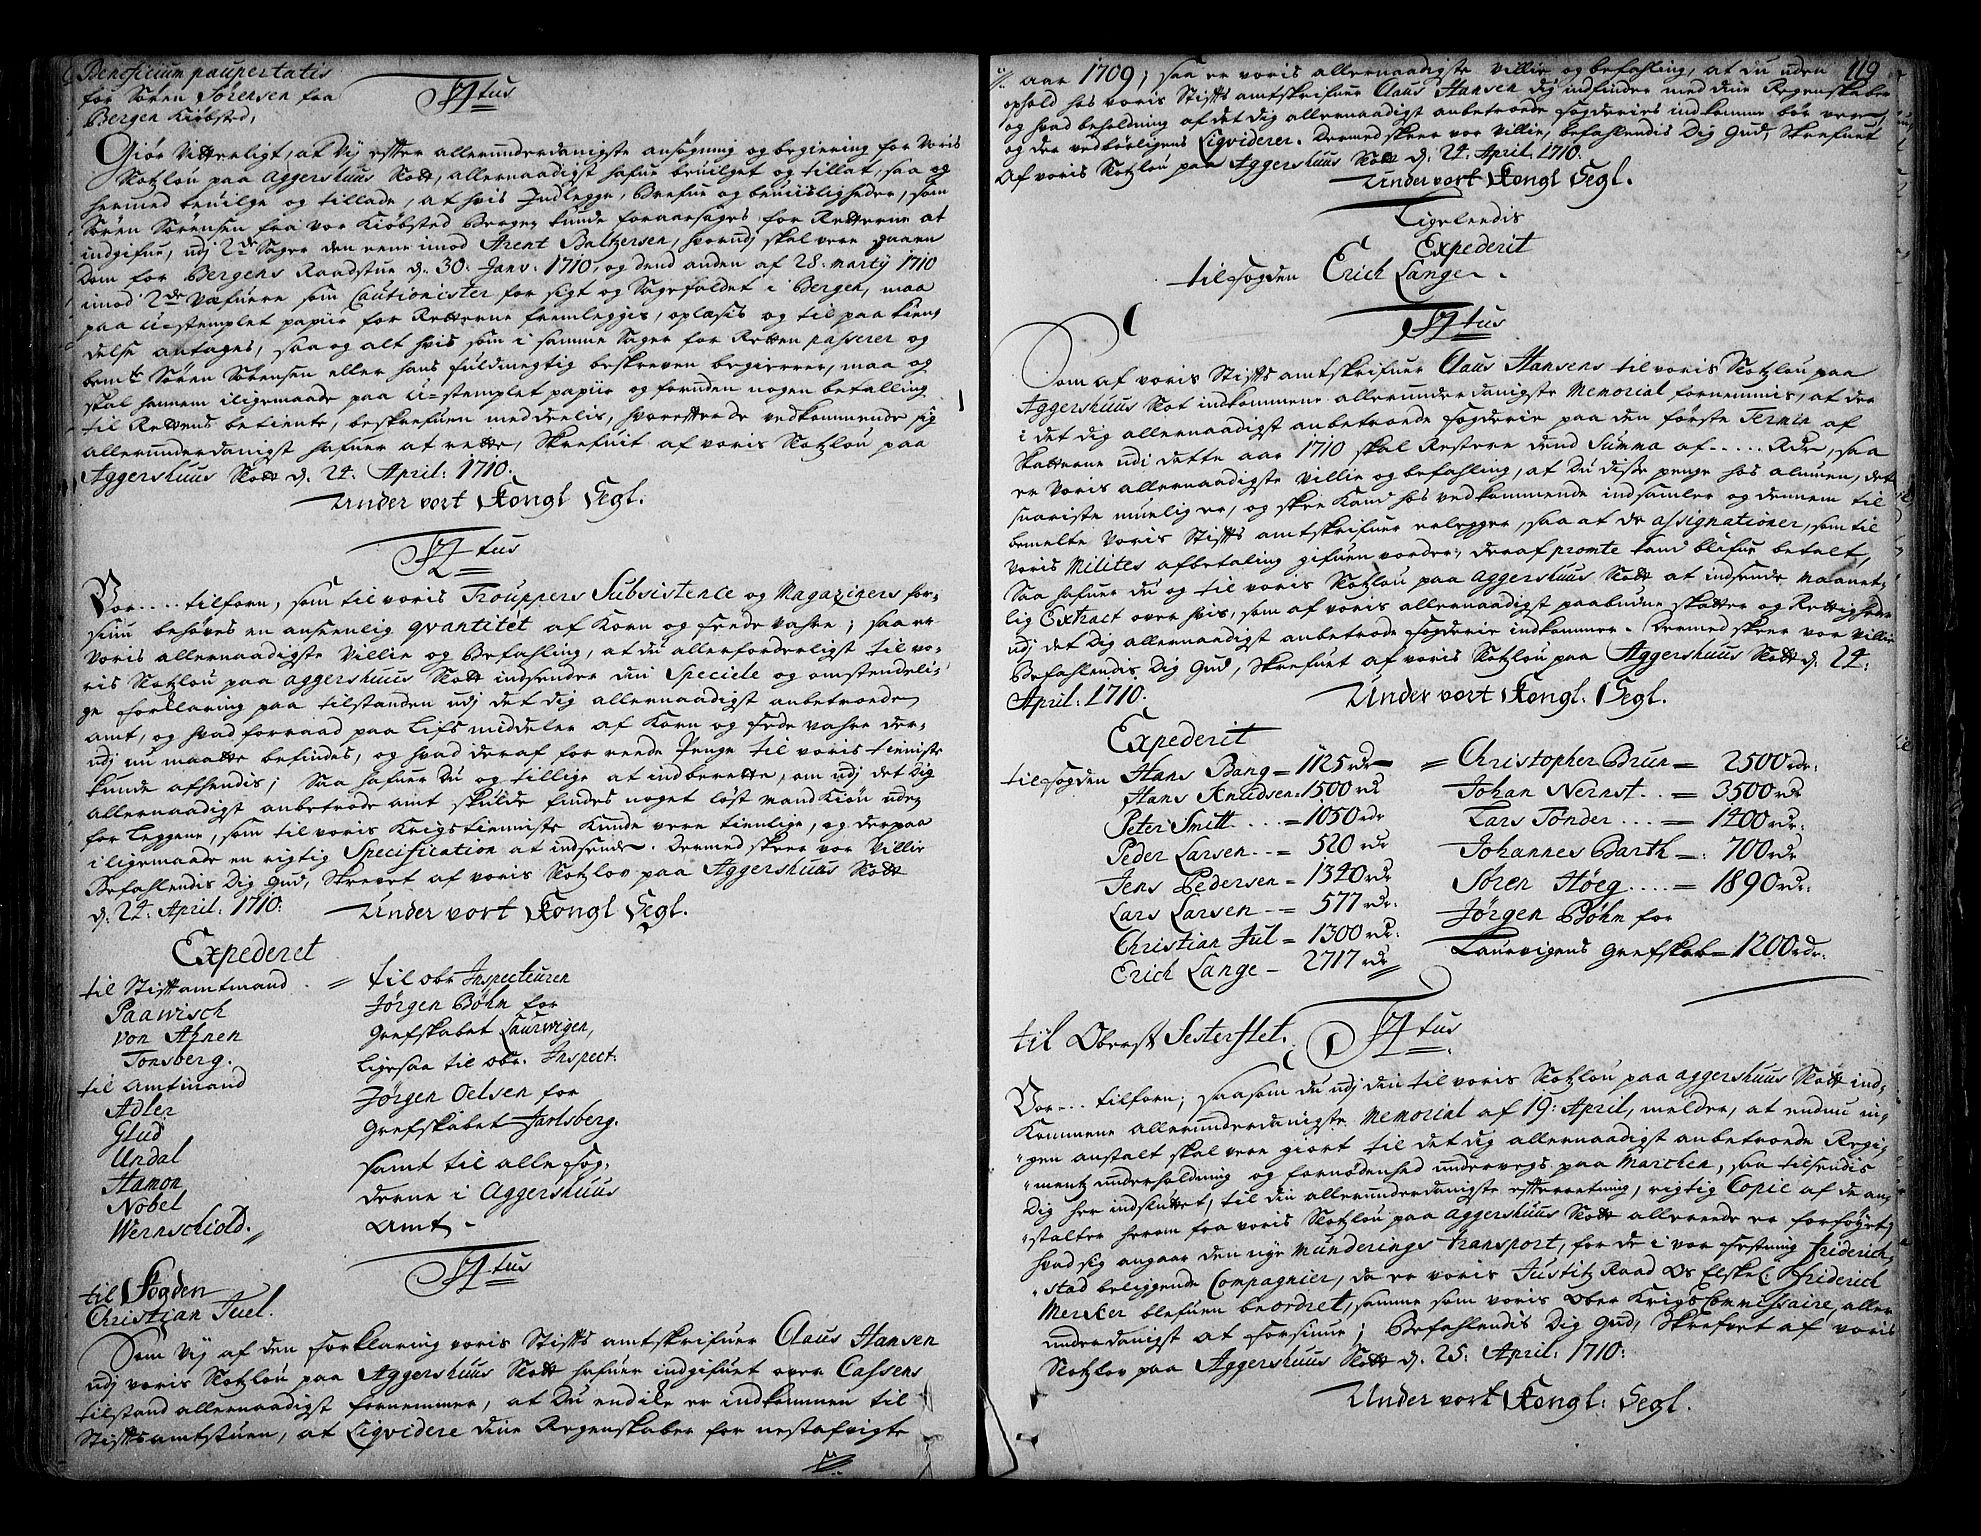 Beneficium paupertatis
for Sören Sörensen fra
Bergen Kiöbsted,
F4tus
Giör Vitterligt, at Vij efter allerunderdanigste ansögning og begiering for Voris
Slotzlou paa Aggershuus Slott, allernaadigst hafue beuilget og tillat, saa og
hermed beuilge og tillade, at hvis Indlegge, Brefue og beuiisligheder, som
Sören Sörensen fra vor Kiöbsted Bergen kunde foraarsages for Retterne at
indgifue, udj 2de Sager den eene imod Arent Baltzersen, hvorudj skal vere gaaen
Dom for Bergens Raadstue d. 30. Janv. 1710, og dend anden af 28. Martij 1710
imod 2de Væfuere som Cautionister for sigt og Sagefaldet i Bergen, maa
paa u-stemplet papiir for Retterne fremlegges, oplæsis og til paa kiend
delse antages, saa og alt hvis som i samme Sager for Retten passerer og
bemte Sören Sörensen eller hans fuldmegtig beskreven begierer, maa og
skal hannem iligemaade paa u-stemplet papiir og foruden nogen betalling
til Rettens betiente, beskrefuen meddeelis, hvorefter de vedkommende sig
allerunderdanigst hafuer at rette, Skrefuit af voris Slotzlou paa
Aggershuus Slott d. 24. April. 1710.
Under vort Kongl Segl.
F4tus
Vor.... tilforn, som til voris Trouppers Subsistence og Magaziners for-
siun behöves en anseenlig qvantitet af Korn og feede vahre; saa er
Voris allernaadigste Villie og Befahling, at du allerforderligst til vo-
ris Slotzlou paa aggershuus Slott indsender din Speciele og omstendeli-
ge forklaring paa tilstanden udj det dig allernaadigst anbetroede
amt, og hvad forraad paa Lifs middeler af Korn og feede vahre der-
udj nu maatte befindes, og hvad deraf for reede Penge til voris tienniste
kunde afhendis; Saa hafuer Du og tillige at indberette, om udj det dig
allernaadigst anbetrode amt skulde findes noget löst mand kiön uden
for Leggene, som til voris Krigstienniste Kunde vere tienlige, og derpaa
iligemaade en rigtig Specification at indsende. Dermed skeer vor Villie
Befahlendis Dig Gud, Skrevet af voris Slotzlov paa Aggershuus Slott
d. 24. April. 1710. Under vort Kongl Segl.
Expederet
til Stiftamtmand
Paawisch
von Ahnen
Tonsberg.
til Amtmand
Adler
Glud
Undal
Hamon
Nobel
Wernschiold.
= til obr Inspecteuren
Jörgen Böhn for
Grefskabet Laurwigen,
Ligesaa til obr. Inspect.
Jörgen Oelsen for
Grefskabet Jarlsberg.
samt til alle fog,
derne i Aggershuus
amt.
F4tus
til Fogden
Christian Juel.
Som Vij af den forklaring voris Stiftsamtskrifuer Claus Hansen
udj voris Slotzlou paa Aggershuus Slott hafuer indgifuet over Cassens
tilstand allernaadigst fornemmer, at Du end ike er indkommen til
Stiftsamtstuen, at Liqvidere dine Regenskaber for nestafvigte
119
aar 1709; saa er voris allernaadigste Villie og befahling, at du uden
ophold hos voris Stiftsamtskrifuer Claus Hansen dig indfinder med dine Regenskaber
og hvad beholdning af det dig allernaadigst anbetroede fogderies indkomme bör vere,
og der vedbörligens Liqviderer. Dermed skeer vor Villie, befahlendis Dig Gud, Skrefuet
af voris Slotzlou paa Aggershuus Slott d. 24. April. 1710.
Under vort Kongl Segl.
Ligelendis
Expederit
til fogden Erich Lange.
F4tus
Som af voris Stiftsamtskrifuer Claus Hansens til voris Slotzlou paa
Aggershuus Slot indkommene allerunderdanigste Memorial fornemmis, at der
i det dig allernaadigst anbetroede fogderie paa den förste Termin af
Skatterne udi dette aar 1710 skal Restere dend Summa af ..... Rdr, saa
er Voris allernaadigste Villie og befahling, at Du disse penge hos almuen, det
snariste muelig er, og skee kand hos vedkommende indsamler og dennem til
bemelte Voris Stiftsamtskrifuer erlegger, saa at de assignationer, som til
Voris Milites afbetaling gifuen vorder, deraf promte kand blifue betalt,
Saa hafuer du og til voris Slotzlou paa Aggershuus Slott at indsende maanet-
lig Extract over hvis, som af voris allernaadigst paabudne skatter og Rettigheder
udj det Dig allernaadigst anbetrode fogderie indkommer. Dermed skeer vor Villie
Befahlendis Dig Gud, Skrefuet af voris Slotzlou paa Aggershuus Slott d. 24.
April. 1710. Under vort Kongl. Segl.
Expederit
til fogden Hans Bang = 1125 rdr
Hans Knudsen. 1500 rd
Peter Smitt. ... = 1050 rdr
Peder Larsen .. = 520 rdr
Jens Pedersen = 1340 rdr
Lars Larsen .. = 577 rdr.
Christian Jul = 1300 rdr.
Erich Lange = 2717 rdr
= Christopher Brun = 2500 rdr.
Johan Nernst. .. = 3500 rdr
Lars Tönder .... = 1400 rdr.
Johannes Barth = 700 rdr
Sören Höeg .... = 1890 rdr.
Jörgen Böhn for
Laurvigens Grefskab = 1200 rdr.
til Oberst Sesterflet. F4tus
Vor.... tilforn; saasom du udj din til voris Slotzlou paa aggershuus Slott ind-
kommene allerunderdanigste Memorial af 19. April, melder, at endnu in-
gen anstalt skal vere giort til det dig allernaadigst anbetroede Regi-
mentz underholdning og fornödenhed undervegs paa Marchen, saa tilsendis
Dig her indsluttet, til din allerunderdanigste efterretning, rigtig Copie af de an-
stalter herom fra voris Slotzlou paa Aggershuus Slott allerede er forföyet,
hvad sig angaar den nye Munderings transport, for de i vor festning friderich-
stad beliggende Compagnier, da er voris Justitz Raad Os Elskel. Friderich
Mercker blefuen beordret, samme som voris Ober Krigs Commissaire, aller
underdanigst at forsiune; Befahlendis Dig Gud, Skrefvet af voris
Slotzlov paa Aggershuus Slott d. 25. April. 1710.
Under vort Kongl. Segl.